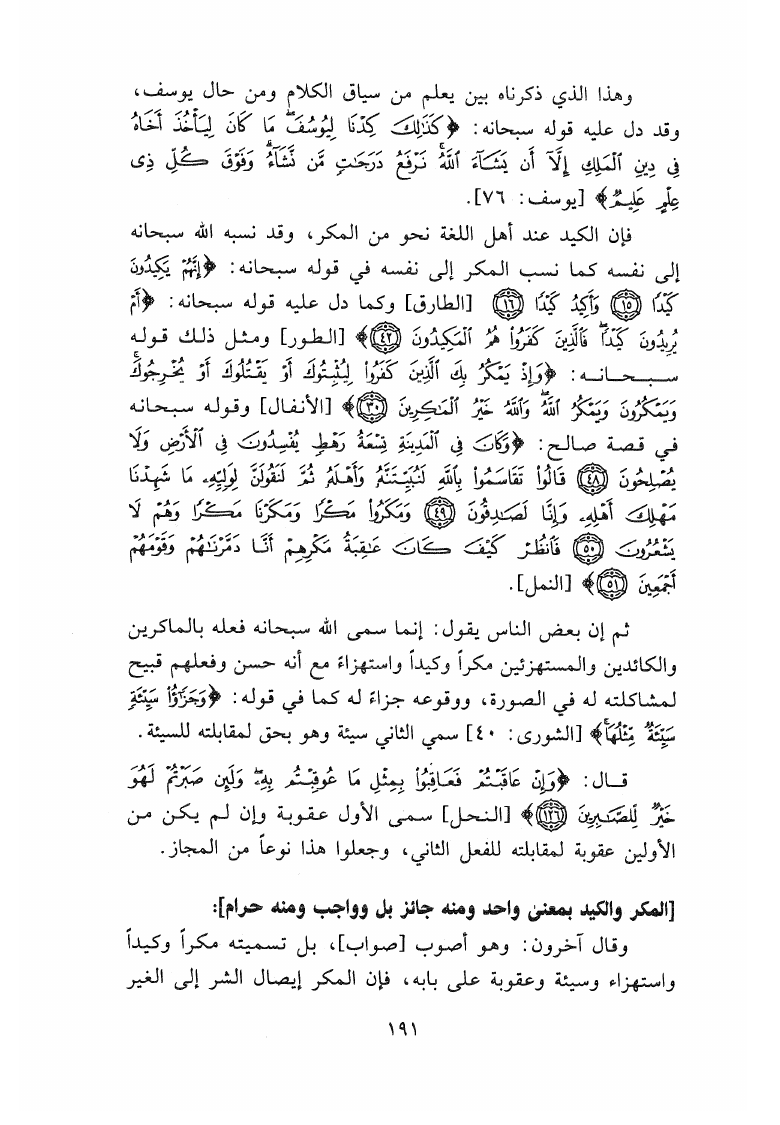 وهذا الذي ذكرناه بين يعلم من سياق الكلام ومن حال يوسف،
وقد دل عليه قوله سبحانه: ﴿كَذَٰلِكَ كِدْنَا لِيُوسُفَ ۖ مَا كَانَ لِيَأْخُذَ أَخَاهُ
فِي دِينِ ٱلْمَلِكِ إِلَّآ أَن يَشَآءَ ٱللَّهُ ۚ نَرْفَعُ دَرَجَٰتٍ مَّن نَّشَآءُ ۗ وَفَوْقَ كُلِّ ذِى
عِلْمٍ عَلِيمٌ﴾ [يوسف: ٧٦].
فإن الكيد عند أهل اللغة نحو من المكر، وقد نسبه الله سبحانه
إلى نفسه كما نسب المكر إلى نفسه في قوله سبحانه: ﴿إِنَّهُمْ يَكِيدُونَ
كَيْدًا ١٥ وَأَكِيدُ كَيْدًا ١٦ [الطارق] وكما دل عليه قوله سبحانه: ﴿أَمْ
يُرِيدُونَ كَيْدًا ۖ فَٱلَّذِينَ كَفَرُوا۟ هُمُ ٱلْمَكِيدُونَ ٤٢﴾ [الطور] ومثل ذلك قوله
سبحانه: ﴿وَإِذْ يَمْكُرُ بِكَ ٱلَّذِينَ كَفَرُوا۟ لِيُثْبِتُوكَ أَوْ يَقْتُلُوكَ أَوْ يُخْرِجُوكَ ۚ
وَيَمْكُرُونَ وَيَمْكُرُ ٱللَّهُ ۖ وَٱللَّهُ خَيْرُ ٱلْمَٰكِرِينَ ٣٠﴾ [الأنفال] وقوله سبحانه
في قصة صالح: ﴿وَكَانَ فِى ٱلْمَدِينَةِ تِسْعَةُ رَهْطٍ يُفْسِدُونَ فِى ٱلْأَرْضِ وَلَا
يُصْلِحُونَ ٤٨ قَالُوا۟ تَقَاسَمُوا۟ بِٱللَّهِ لَنُبَيِّتَنَّهُۥ وَأَهْلَهُۥ ثُمَّ لَنَقُولَنَّ لِوَلِيِّهِۦ مَا شَهِدْنَا
مَهْلِكَ أَهْلِهِۦ وَإِنَّا لَصَٰدِقُونَ ٤٩ وَمَكَرُوا۟ مَكْرًا وَمَكَرْنَا مَكْرًا وَهُمْ لَا
يَشْعُرُونَ ٥٠ فَٱنظُرْ كَيْفَ كَانَ عَٰقِبَةُ مَكْرِهِمْ أَنَّا دَمَّرْنَٰهُمْ وَقَوْمَهُمْ
أَجْمَعِينَ ٥١﴾ [النمل].
ثم إن بعض الناس يقول: إنما سمى الله سبحانه فعله بالماكرين
والكائدين والمستهزئين مكراً وكيداً واستهزاءً مع أنه حسن وفعلهم قبيح
لمشاكلته له في الصورة، ووقوعه جزاءً له كما في قوله: ﴿وَجَزَٰٓؤُا۟ سَيِّئَةٍ
سَيِّئَةٌ مِّثْلُهَا ۖ﴾ [الشورى: ٤٠] سمي الثاني سيئة وهو بحق لمقابلته للسيئة.
قال: ﴿وَإِنْ عَاقَبْتُمْ فَعَاقِبُوا۟ بِمِثْلِ مَا عُوقِبْتُم بِهِۦ ۖ وَلَئِن صَبَرْتُمْ لَهُوَ
خَيْرٌ لِّلصَّٰبِرِينَ ١٢٦﴾ [النحل] سمى الأول عقوبة وإن لم يكن من
الأولين عقوبة لمقابلته للفعل الثاني، وجعلوا هذا نوعاً من المجاز.
[المكر والكيد بمعنىٰ واحد ومنه جائز بل وواجب ومنه حرام]:
وقال آخرون: وهو أصوب [صواب]، بل تسميته مكراً وكيداً
واستهزاء وسيئة وعقوبة على بابه، فإن المكر إيصال الشر إلى الغير
١٩١